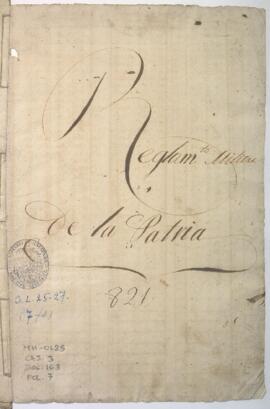 Reglam.to Militar
de la Patria
821
O.L. 25-27
MH-OL25
CAJ. 3
DOC. 163
FOL. 7